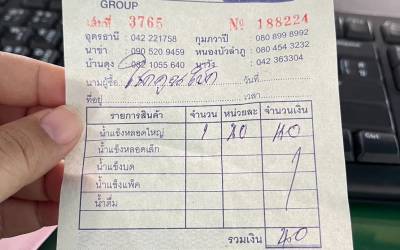 GROUP
เล่มที่ 3765 № 188224
อุดรธานี : 042 221758 กุมภวาปี : 080 899 8992
นาข่า : 090 520 9459 หนองบัวลำภู : 080 454 3232
บ้านดุง : 082 1055 640 นาวัง : 042 363304
นามผู้ซื้อ วันที่
ที่อยู่ เวลา
รายการสินค้า จำนวน หน่วยละ จำนวนเงิน
น้ำแข็งหลอดใหญ่ 1 40 40
น้ำแข็งหลอดเล็ก
น้ำแข็งบด
น้ำแข็งแพ็ค
น้ำดื่ม
รวมเงิน 40